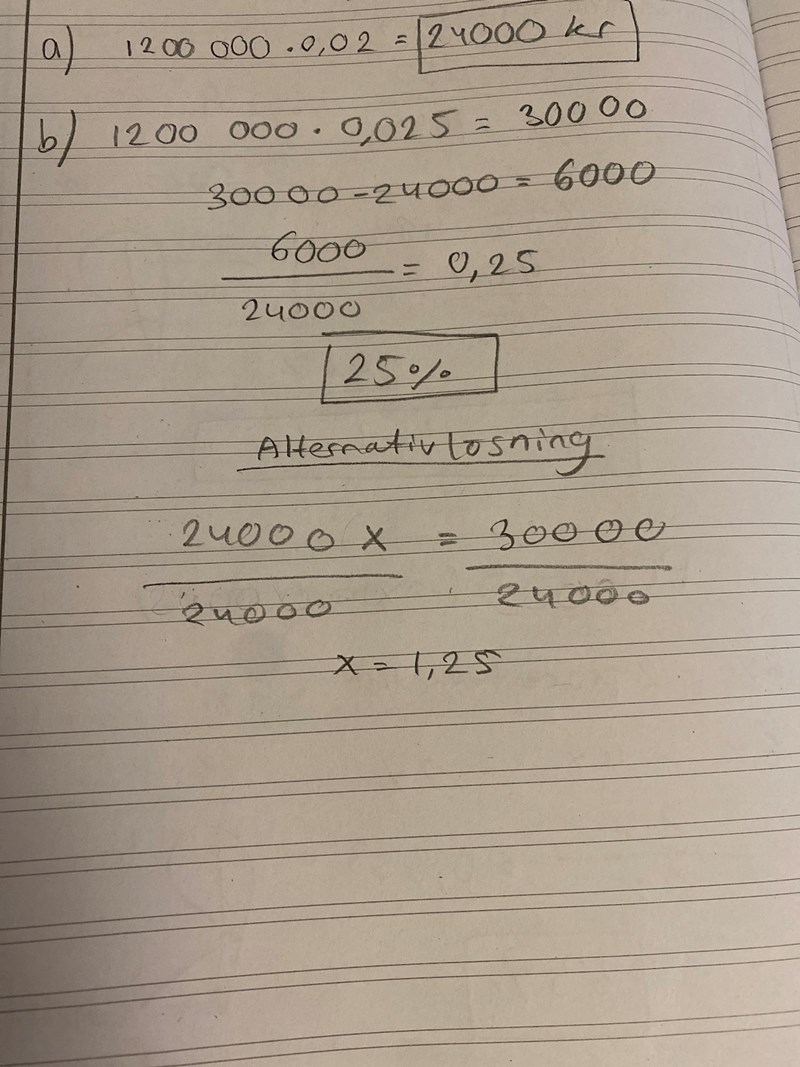 a) 1200 000 · 0,02 = 24000 kr
b) 1200 000 · 0,025 = 30000
30000 - 24000 = 6000
6000
= 0,25
24000
25%
Alternativ losning
24000 x = 30000
24000 24000
x = 1,25